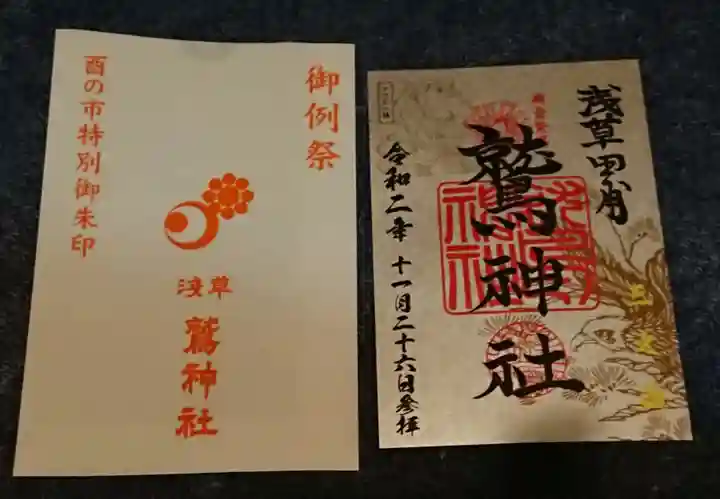 御例祭
酉の市特別御朱印
浅草
鷲神社
浅草田甫
鷲神社
令和二年 十一月二十六日参拝